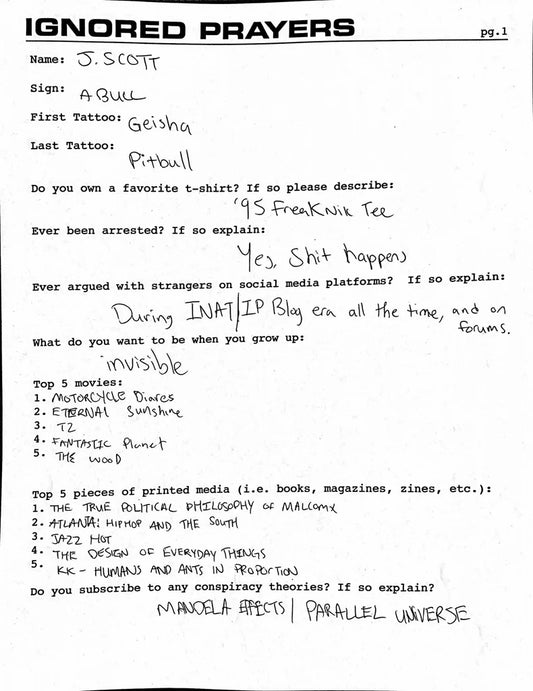 IGNORED PRAYERS
pg.1
Name: J. SCOTT
Sign: A BULL
First Tattoo: Geisha
Last Tattoo: Pitbull
Do you own a favorite t-shirt? If so please describe:
'95 FreaKNik Tee
Ever been arrested? If so explain:
Yes, Shit happens
Ever argued with strangers on social media platforms? If so explain:
During INAT/IP Blog era all the time, and on
forums.
What do you want to be when you grow up:
invisible
Top 5 movies:
1. MOTORCYCLE Diares
2. ETERNAL Sunshine
3. T2
4. FANTASTIC Planet
5. THE WOOD
Top 5 pieces of printed media (i.e. books, magazines, zines, etc.):
1. THE TRUE POLITICAL PHILOSOPHY OF MALCOMX
2. ATLANTA: HIPHOP AND THE SOUTH
3. JAZZ HOT
4. THE DESIGN OF EVERYDAY THINGS
5. KK - HUMANS AND ANTS IN PROPORTION
Do you subscribe to any conspiracy theories? If so explain?
MANDELA EFFECTS / PARALLEL UNIVERSE